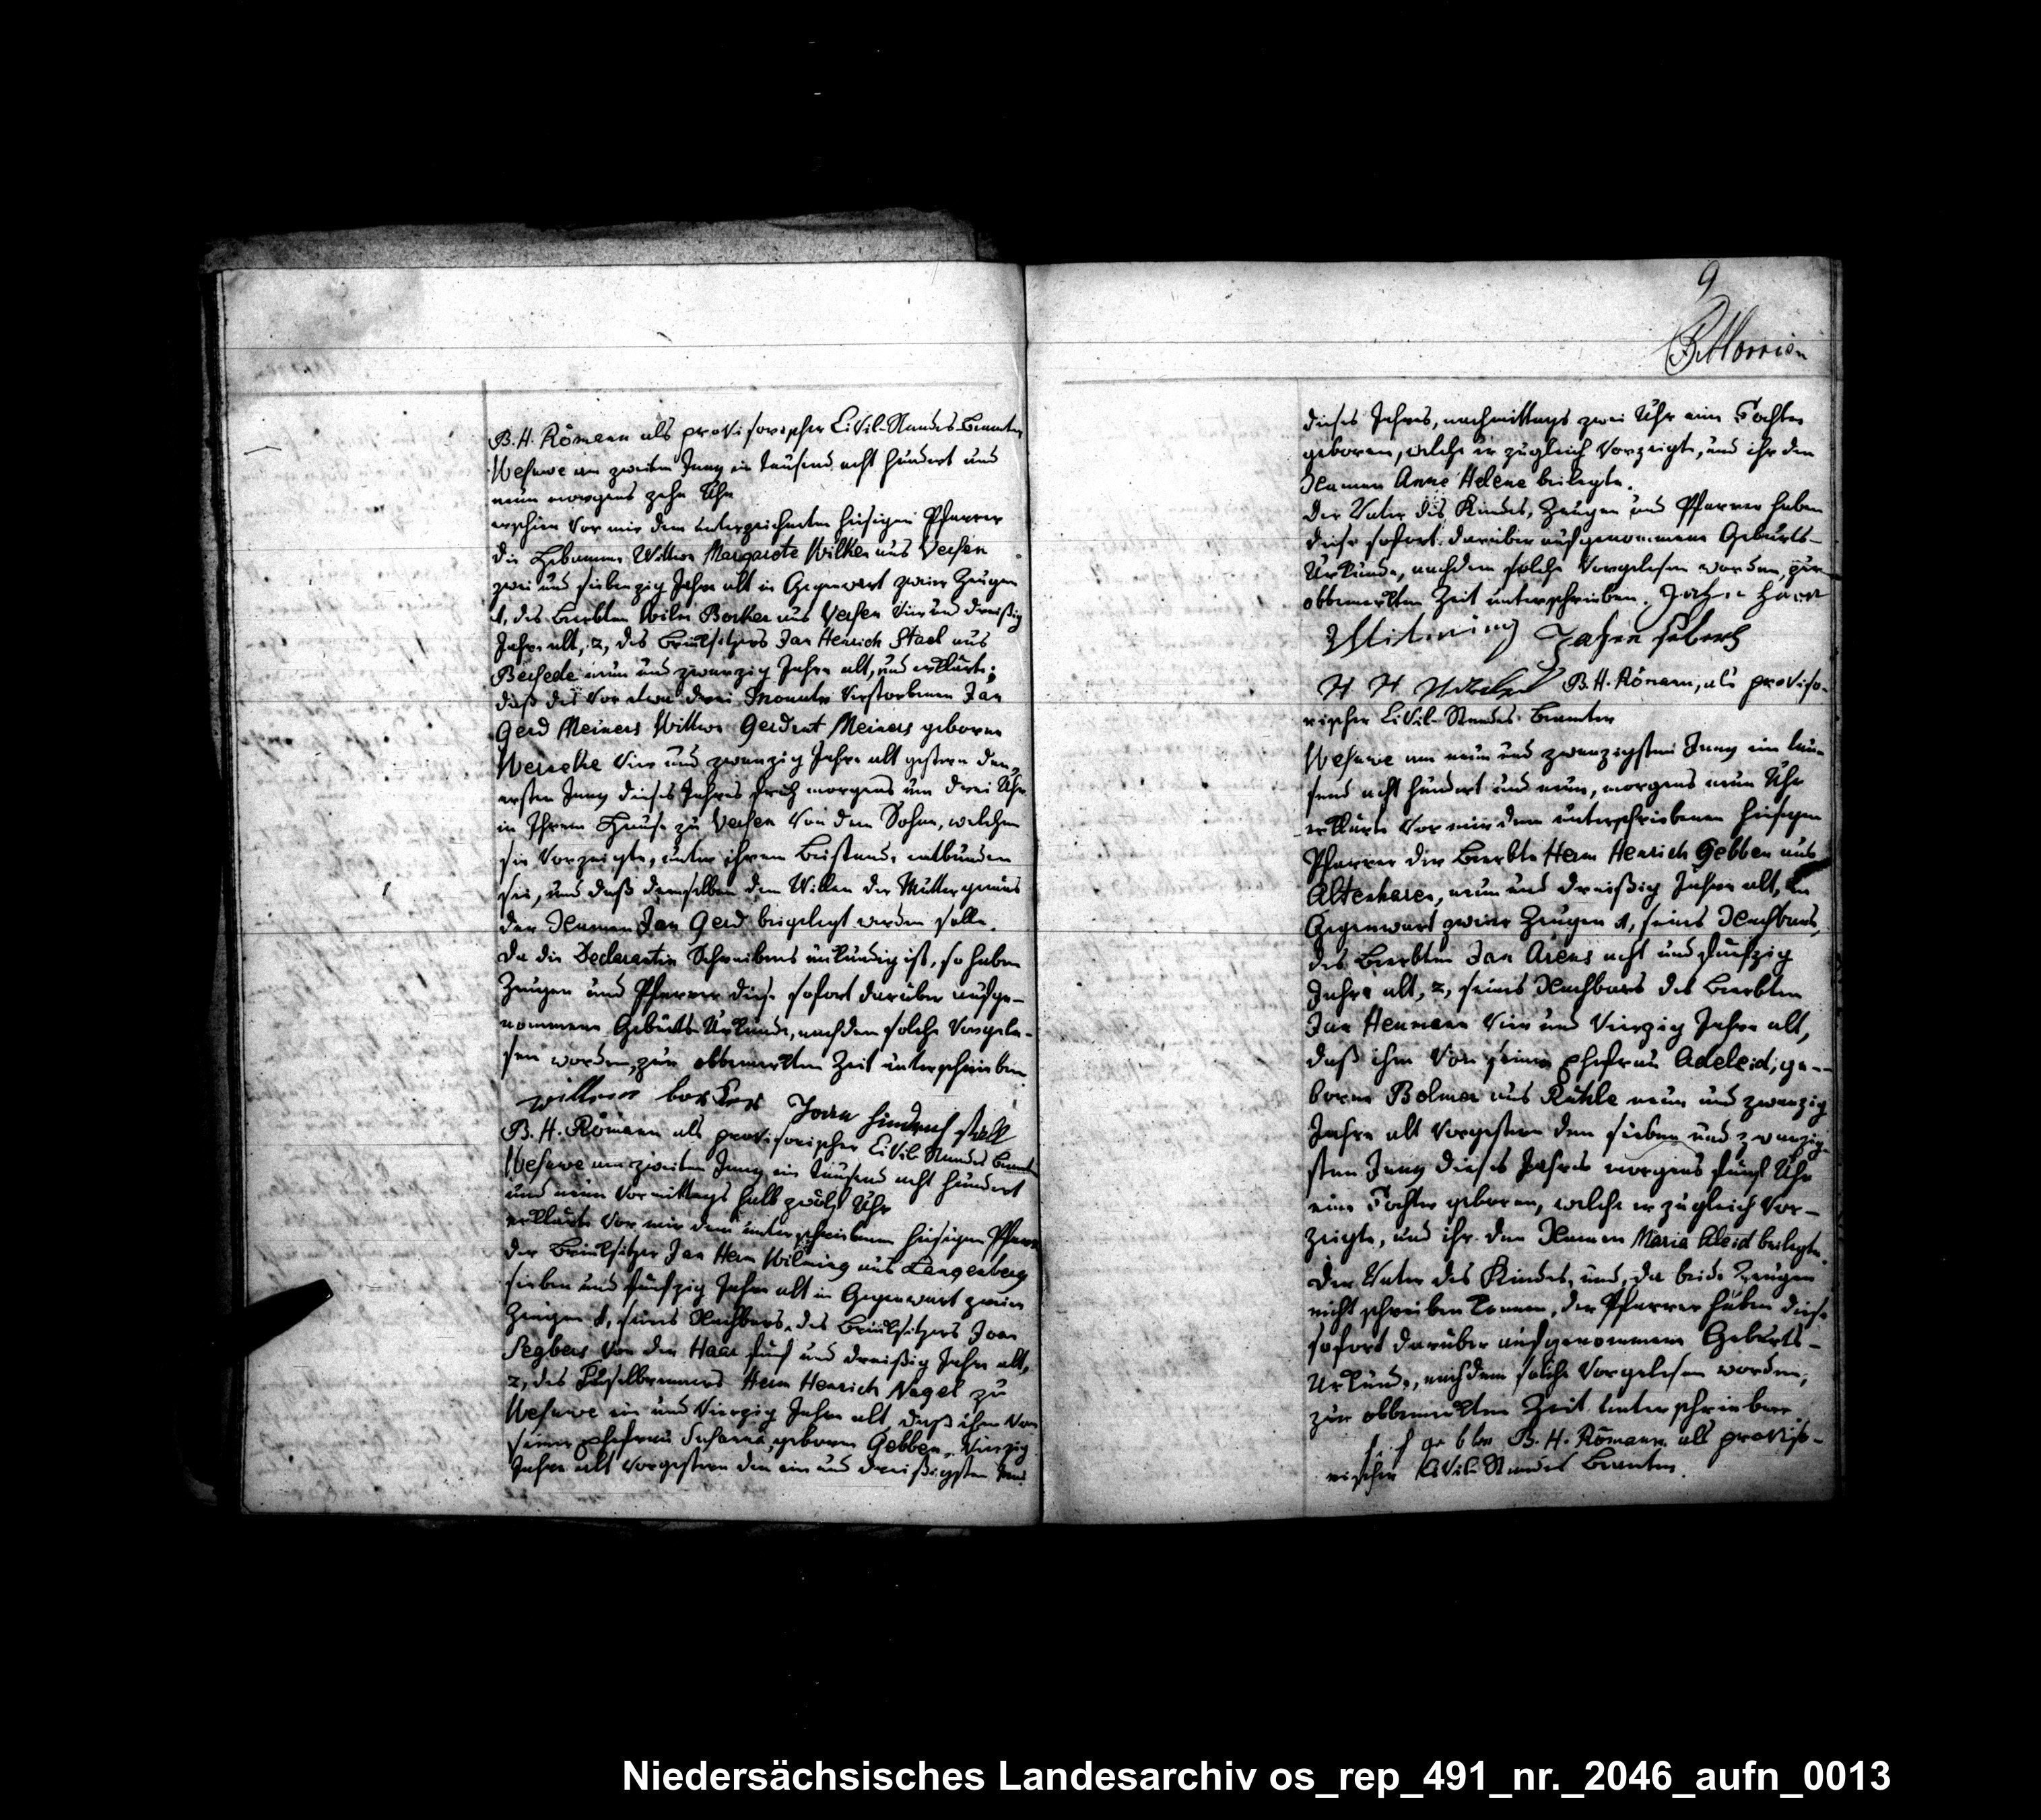 B. H. Römann als provisorischer Civil-Standes-Beamter
Wesuwe am zweiten Juny ein tausend acht hundert und
neun morgens zehn Uhr
erschien vor mir dem unterzeichneten hiesigen Pfarrer
die Hebamme Wittwe Margarete Wilken aus Versen
zwei und siebenzig Jahre alt in Gegenwart zweier Zeugen
1, des Beerbten Wilm Borker aus Versen vier und dreißig
Jahre alt, 2, des Brinksitzers Jan Henrich Stael aus
Bersede neun und zwanzig Jahre alt, und erklärte;
daß des vor etwa drei Monate verstorbenen Jan
Gerd Meiners Wittwe Gerdrut Meiners geborne
vier und zwanzig Jahre alt gestern den
ersten Juny dieses Jahres früh morgens um drei Uhr
in Ihrem Hause zu Versen von dem Sohne, welchen
sie vorzeigte, unter ihrem Beistande entbunden
sei, und daß demselben dem Willen der Mutter gemäs
der Namen Jan Gerd beigelegt werden solle.
Da die Declarantin Schreibens unkundig ist, so haben
Zeugen und Pfarrer diese sofort darüber aufge-
nommene Geburts-Urkunde, nachdem solche vorgele-
sen worden, zur obbemerkten Zeit unterschrieben
willem borker Joan hindrich stall
B. H. Römann als provisorischer Civil Standes Beamter
Wesuwe am zweiten Juny ein tausend acht hundert
und neun vormittags halb zwölf Uhr
erklärte vor mir dem unterschriebenen hiesigen Pfarrer
der Brinksitzer Jan Herm Wilming aus Langenberg
sieben und fünfzig Jahre alt in Gegenwart zweier
Zeugen 1, seines Nachbars, des Brinksitzers Joan
Segbers von der Haar fünf und dreißig Jahre alt,
2, des Fuselbrenners Herm Henrich Nagel zu
Wesuwe ein und vierzig Jahre alt, daß ihm von
seiner Ehefrau Susanna, geborne Gebben, vierzig
Jahre alt vorgestern den ein und dreißigsten May
9
dieses Jahres, nachmittags zwei Uhr eine Tochter
geboren, welche er zugleich vorzeigte, und ihr den
Namen Anne Helene beilegte.
Der Vater des Kindes, Zeugen und Pfarrer haben
diese sofort darüber aufgenommene Geburts-
Urkunde, nachdem solche vorgelesen worden, zur
obbemerkten Zeit unterschrieben.
B. H. Römann, als proviso-
rischer Civil-Standes-Beamter
Wesuwe am neun und zwanzigsten Juny ein tau-
send acht hundert und neun, morgens neun Uhr
erklärte vor mir dem unterschriebenen hiesigen
Pfarrer der Beerbte Herm Henrich Gebben aus
Altenharen, neun und dreißig Jahre alt, in
Gegenwart zweier Zeugen 1, seines Nachbars,
des Beerbten Jan Arens acht und fünfzig
Jahre alt, 2, seines Nachbars des Beerbten
Jan Henmann vier und vierzig Jahre alt,
daß ihm von seiner Ehefrau Adeleid, ge-
borne Bolmer aus Rühle neun und zwanzig
Jahre alt vorgestern den sieben und zwanzig-
sten Juny dieses Jahres morgens fünf Uhr
eine Tochter geboren, welche er zugleich vor-
zeigte, und ihr den Namen Maria Aleid beilegte.
Der Vater des Kindes, und, da beide Zeugen
nicht schreiben können, der Pfarrer haben diese
sofort darüber aufgenommene Geburts-
Urkunde, nachdem solche vorgelesen worden,
zur obbemerkten Zeit unterschrieben.
gebben B. H. Römann als proviso-
rischer Civil-Standes Beamter.
Niedersächsisches Landesarchiv os_rep_491_nr._2046_aufn_0013